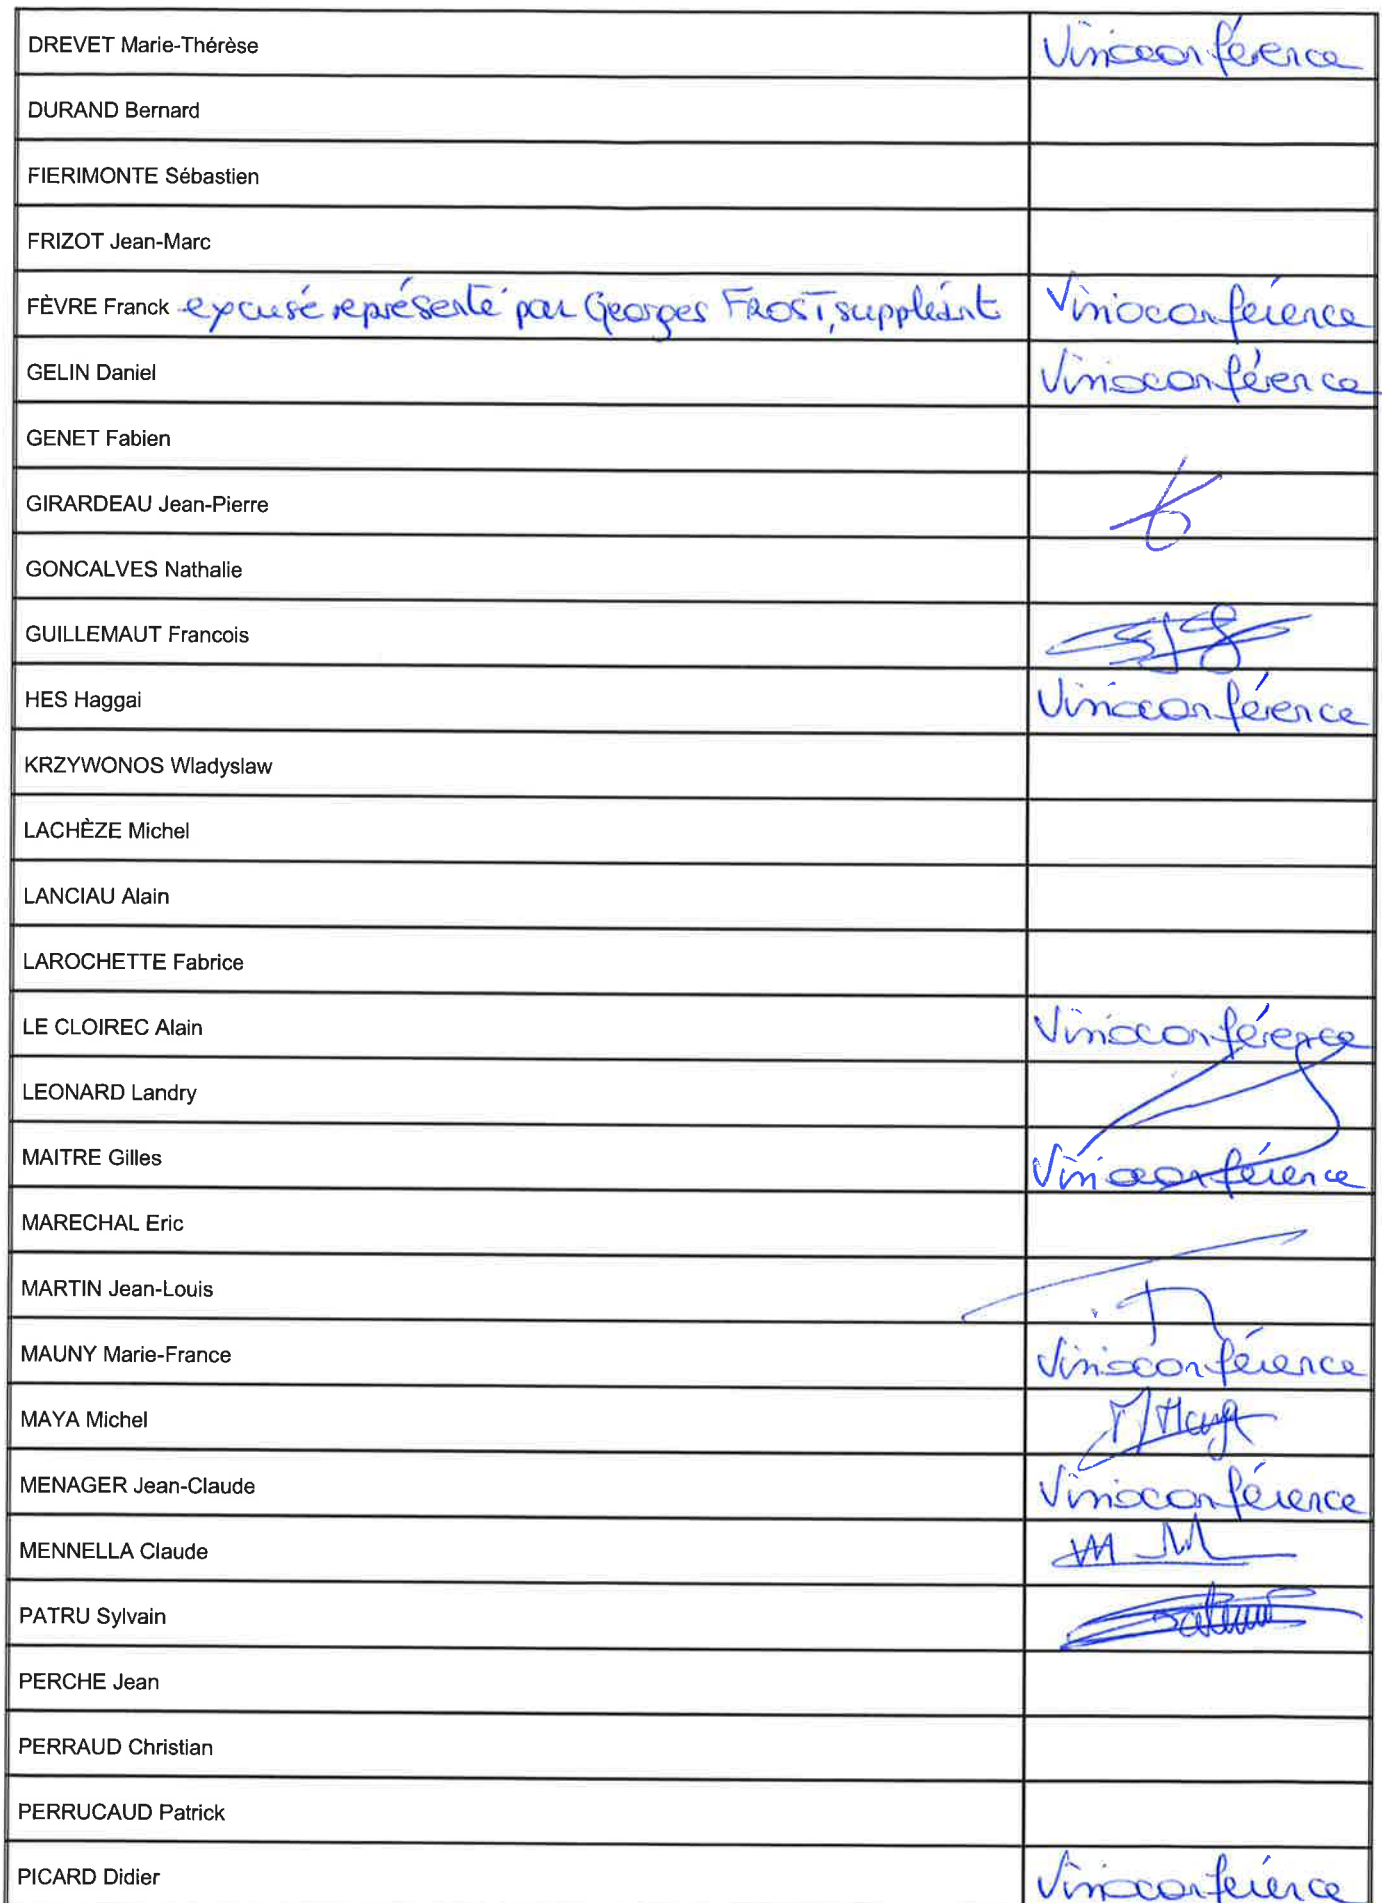 DREVET Marie-Thérèse Visioconférence
DURAND Bernard
FIERIMONTE Sébastien
FRIZOT Jean-Marc
FÈVRE Franck excusé représenté par Georges FROST, suppléant Visioconférence
GELIN Daniel Visioconférence
GENET Fabien
GIRARDEAU Jean-Pierre
GONCALVES Nathalie
GUILLEMAUT Francois
HES Haggai Visioconférence
KRZYWONOS Wladyslaw
LACHÈZE Michel
LANCIAU Alain
LAROCHETTE Fabrice
LE CLOIREC Alain Visioconférence
LEONARD Landry
MAITRE Gilles Visioconférence
MARECHAL Eric
MARTIN Jean-Louis
MAUNY Marie-France Visioconférence
MAYA Michel
MENAGER Jean-Claude Visioconférence
MENNELLA Claude
PATRU Sylvain
PERCHE Jean
PERRAUD Christian
PERRUCAUD Patrick
PICARD Didier Visioconférence